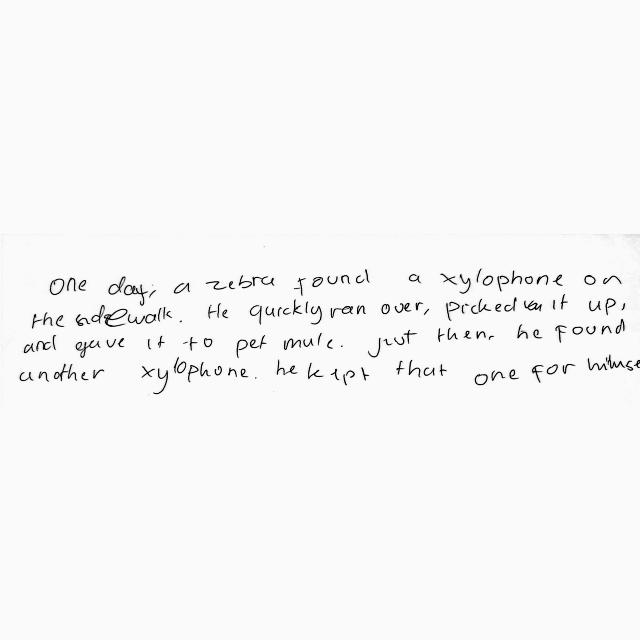 One day, a zebra found a xylophone on
the sidewalk. He quickly ran over, picked it up,
and gave it to pet mule. just then, he found
another xylophone. he kept that one for himse